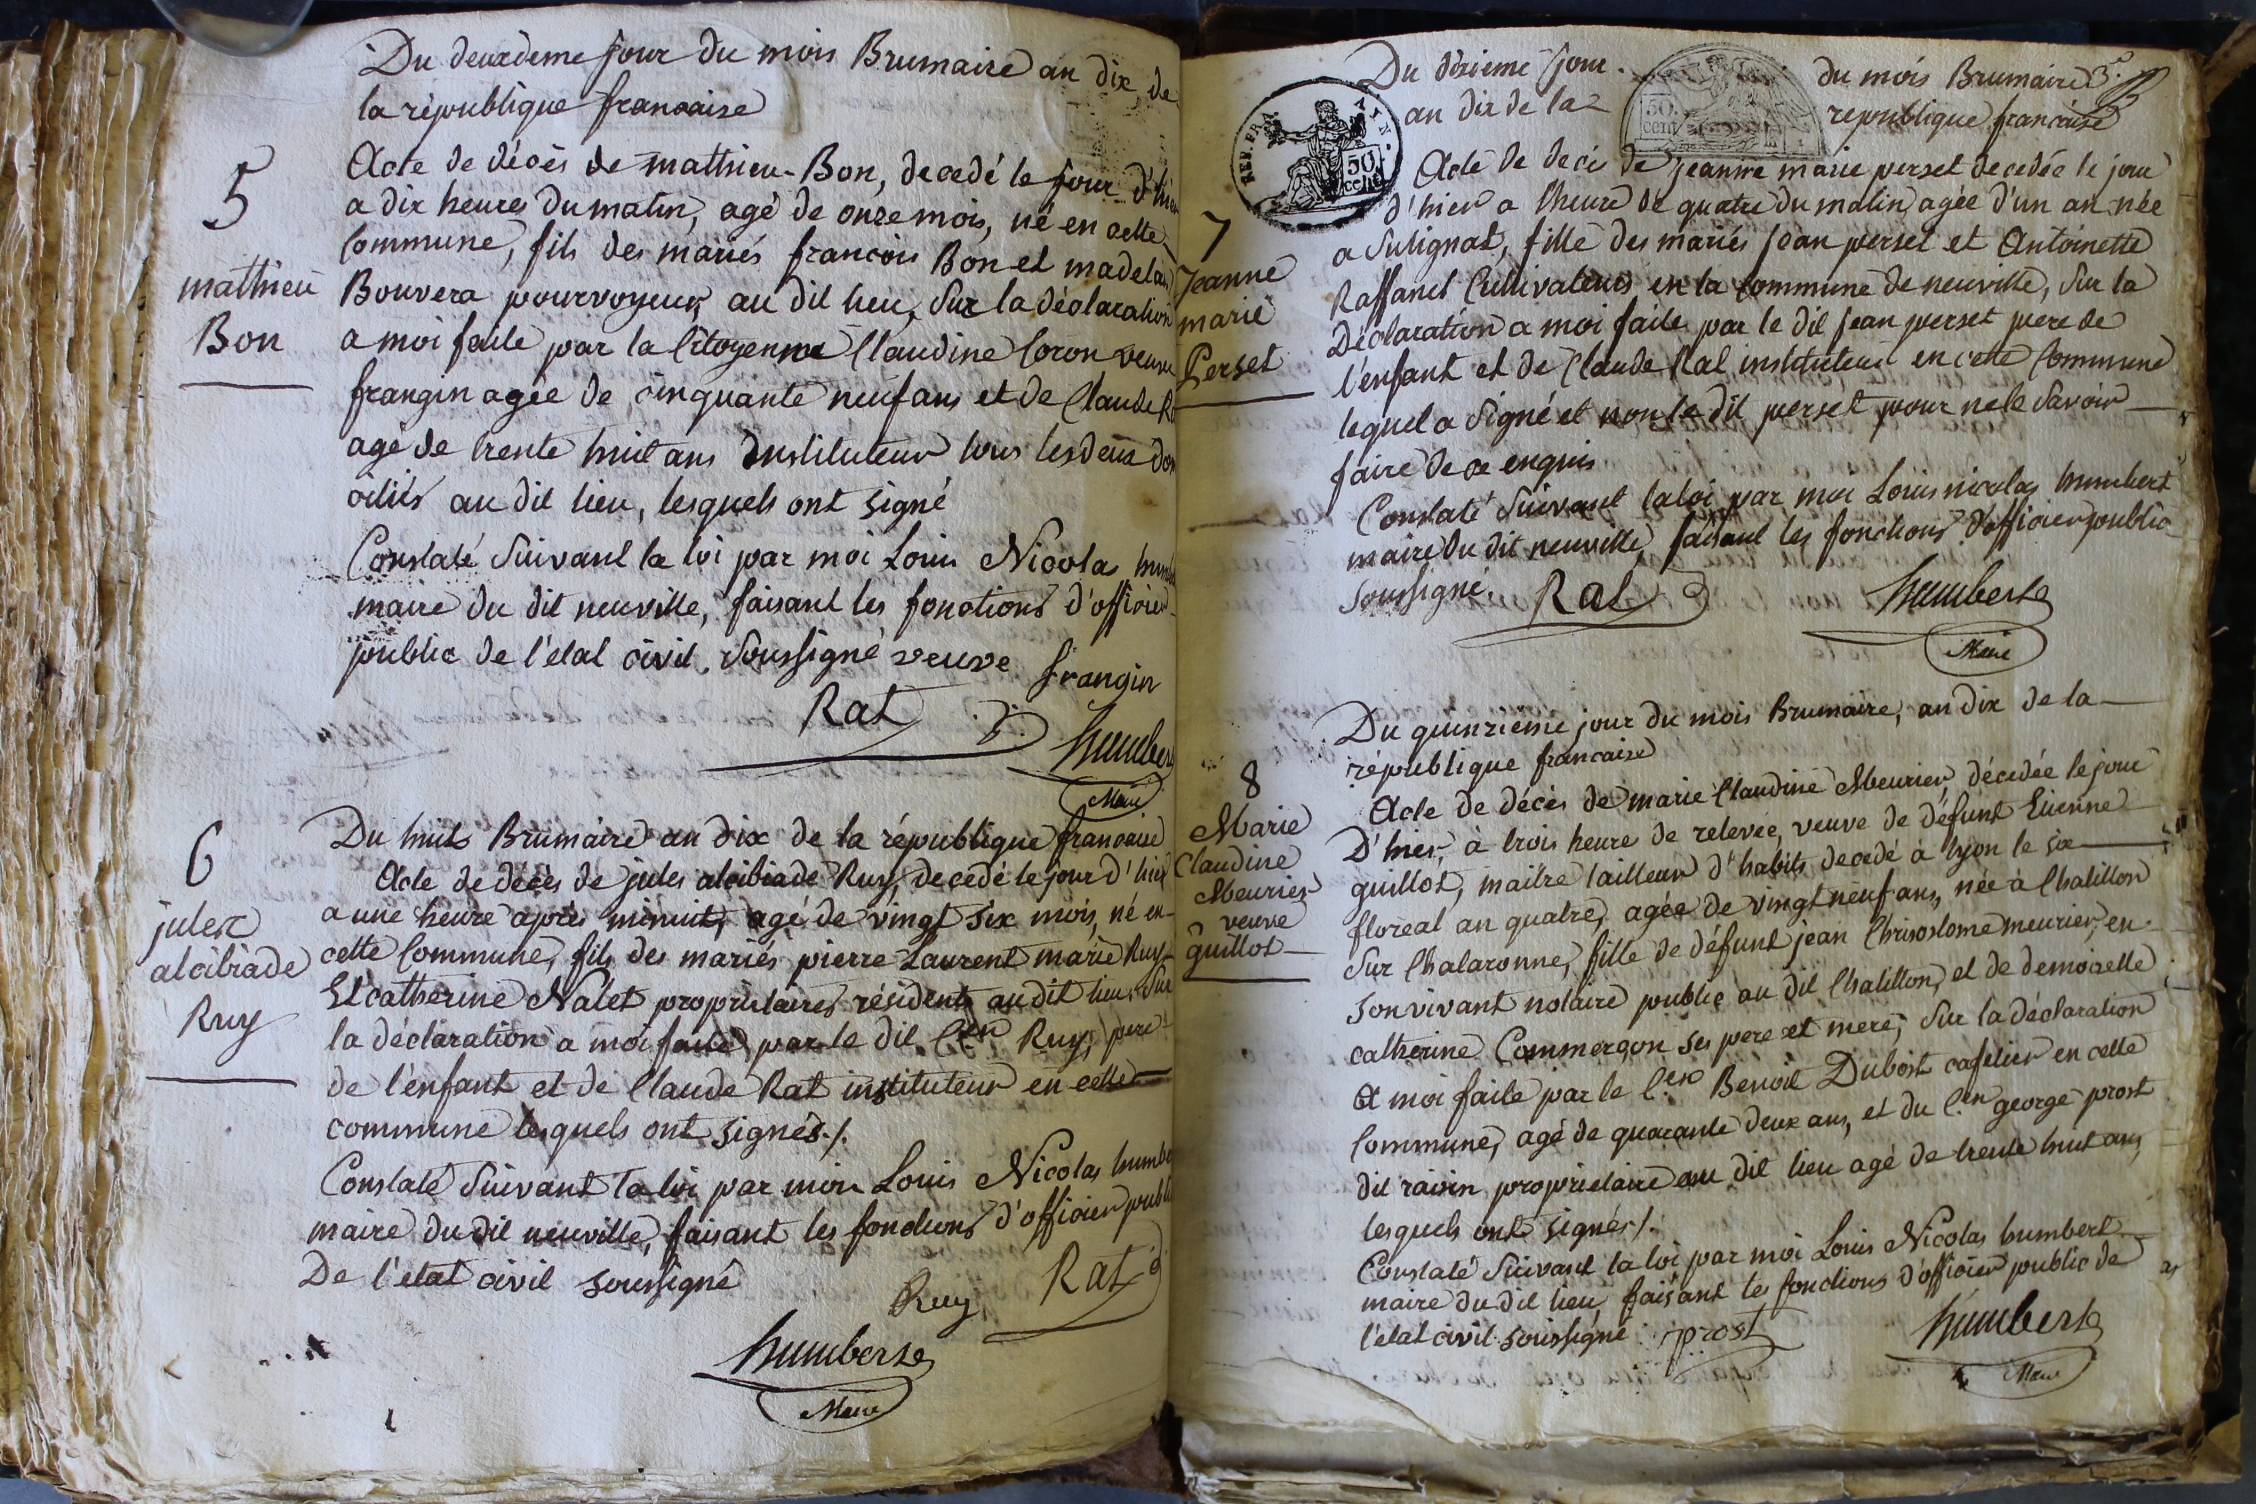 Du deuxieme jour du mois Brumaire an dix de
la république francaise
5
mathieu
Bon
Acte de décès de mathieu Bon, decedé le jour d'hier
a dix heures du matin, agé de onze mois, né en cette
Commune, fils des mariés francois Bon et madelai
Bouvera pourvoyeur au dit lieu, Sur la déclaration
a moi faite par la Citoyenne Claudine Coron veuve
frangin agée de cinquante neuf ans et de Claude R
agé de trente huit ans Instituteur tous les deux dom
ciliés au dit lieu, lesquels ont signé
Constaté Suivant la loi par moi Louis Nicolas humb
maire du dit neuville, faisant les fonctions d'officier
public de l'état civil Soussigné veuve frangin
Rat
humbert
Maire
6
jules
alcibiade
Ruy
Du huit Brumaire an dix de la république francaise
Acte de décès de jules alcibiade Ruy, decedé le jour d'hier
a une heure après minuit, agé de vingt six mois, né en
cette Commune, fils des mariés pierre Laurent marie Ruy
Et catherine Nalet propriétaires résidents au dit lieu, Sur
la déclaration a moi faite par le dit C.en Ruy, pere
de l'enfant et de Claude Rat instituteur en cette
commune lesquels ont signés./.
Constaté Suivant la loi par moi Louis Nicolas humbe
maire du dit neuville, faisant les fonctions d'officier publi
De l'etat civil soussigné
Ruy
Rat
humbert
Maire
Du dixieme jour du mois Brumaire
an dix de la république francaise
REP. FRA. AIN.
50 cent
50 cent
7
Jeanne
marie
Perset
Acte de decè de jeanne marie perset decedée le jour
d'hier a l'heure de quatre du matin, agée d'un an née
a Sulignat, fille des mariés jean perset et Antoinette
Raffanel Cultivateurs en la Commune de neuville, Sur la
Déclaration a moi faite par le dit jean perset pere de
l'enfant et de Claude Rat instituteur en cette Commune
lequel a signé et non le dit perset pour ne le Savoir
faire de ce enquis
Constaté Suivant la loi par moi Louis nicolas humbert
maire du dit neuville, faisant les fonctions d'officier public
Soussigné.
Rat
humbert
Maire
8
Marie
Claudine
Meurier
veuve
guillot
Du quinzieme jour du mois Brumaire, an dix de la
république francaise
Acte de décès de marie Claudine Meurier, décedée le jour
D'hier, à trois heure de relevée, veuve de défunt Etienne
guillot, maitre tailleur d'habits decedé à lyon le six
floreal an quatre, agée de vingt neuf ans, née à Chatillon
Sur Chalaronne, fille de défunt jean Chrisostome meurier, en
Son vivant notaire public au dit Chatillon, et de demoiselle
catherine Commerçon ses pere et mere, Sur la déclaration
A moi faite par le C.en Benoit Dubost cafetier en cette
Commune, agé de quarante deux ans, et du C.en george prost
dit raisin propriétaire au dit lieu agé de trente huit ans,
lesquels ont signés./.
Constaté Suivant la loi par moi Louis Nicolas humbert
maire du dit lieu, faisant les fonctions d'officier public de
l'etat civil soussigné
prost
humbert
Maire